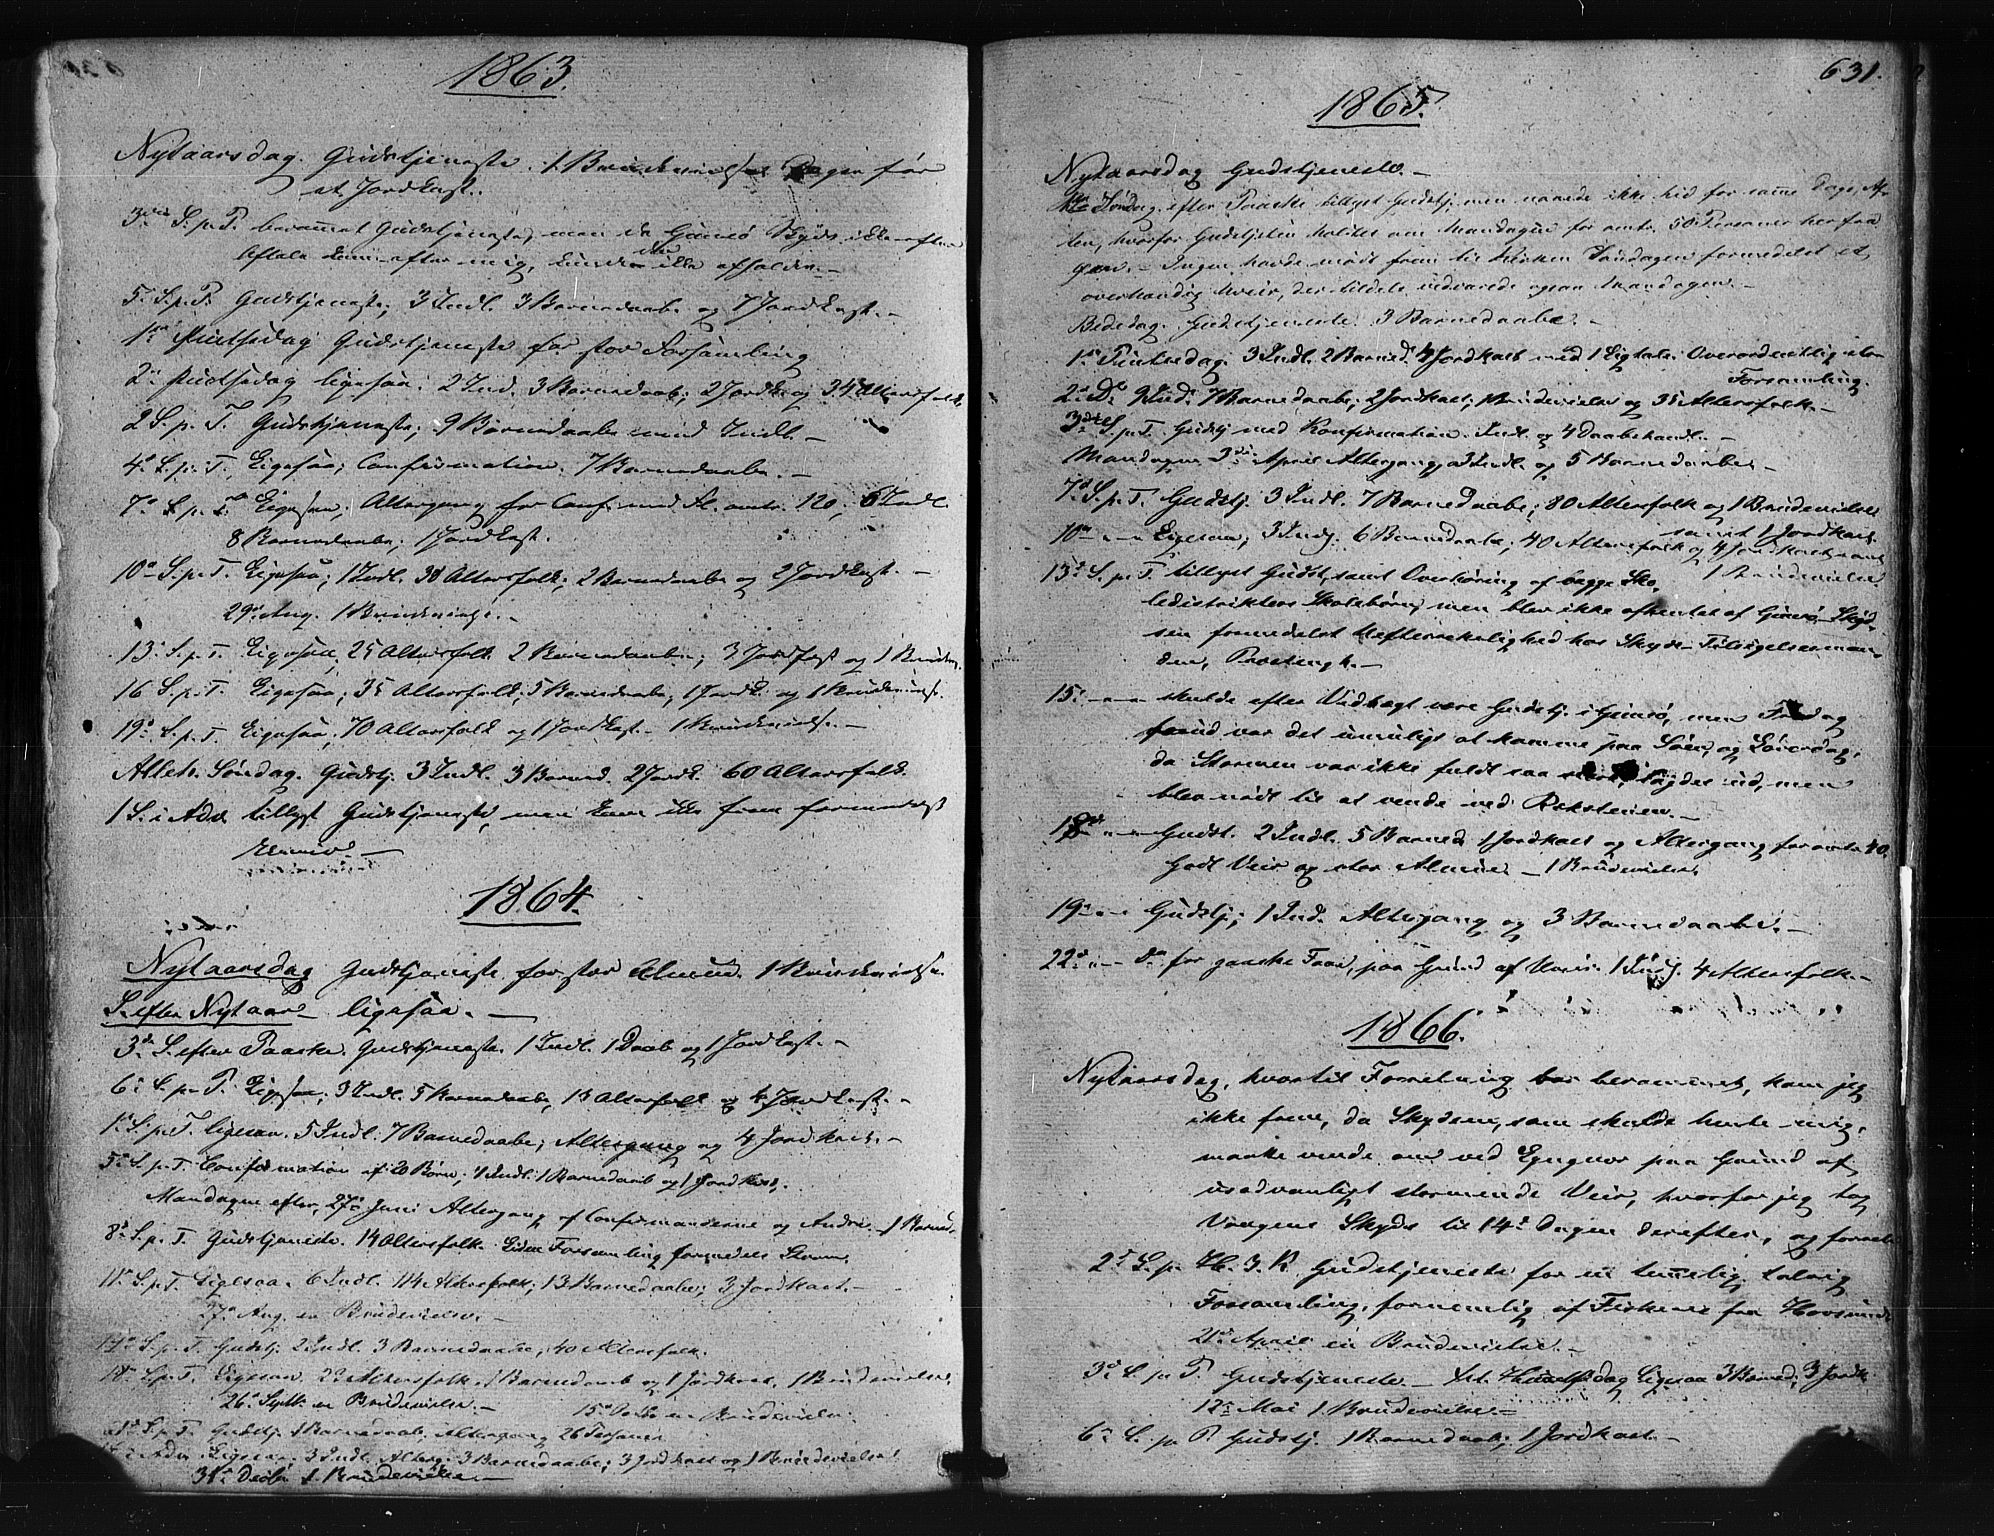 1863.
Nytaarsdag. Gudstjeneste. 1 Brudevielse. Dagen før
et Jordkast.
3die S. p. P. berammet Gudstjeneste, men da Gimsø Skyds ikke efter
Aftale kom efter mig, kunde den ikke afholdes. –
5te S. p. P. Gudstjeneste; 3 Indl. 3 Barnedaabe og 7 Jordkast. –
1ste Pintsedag Gudstjeneste for stor Forsamling
2den Pintsedag ligesaa. 2 Ind. 3 Barnedaab; 2 Jordk. og 34 Altersfolk.
2 S. p. T. Gudstjeneste; 9 Barnedaabe med Indl. –
4de S. p. T. Ligesaa; Confirmation. 7 Barnedaabe. –
7de S. p. T. Ligesaa; Altergang for Confirmed. Al. omtr. 120; 6 Indl.
8 Barnedaabe; 1 Jordkast.
10de S. p. T. Ligesaa; 1 Indl. 38 Altersfolk; 2 Barnedaabe og 2 Jordkast. –
29de Aug. 1 Brudevielse. –
13de S. p. T. Ligesaa; 25 Altersfolk. 2 Barnedaabe; 3 Jordkast og 1 Brudev.
16 S. p. T. Ligesaa; 35 Altersfolk; 5 Barnedaabe; 1 Jordk. og 1 Brudevielse.
19de S. p. T. Ligesaa; 70 Altersfolk og 1 Jordkast. 1 Brudevielse. –
Alleh. Søndag. Gudstj. 3 Indl. 3 Barned. 2 Jordk. 60 Altersfolk.
1 S. i Adv. tillyst Gudstjeneste, men kom ikke frem formedelst
1864.
Nytaarsdag Gudstjeneste for stor Almue. 1 Brudevielse.
S. efter Nytaar – ligesaa. –
3de S. efter Paaske. Gudstjeneste. 1 Indl. 1 Daab og 1 Jordkast. –
6te S. p. P. Ligesaa; 3 Indl. 5 Barnedaabe, 13 Altersfolk og 4 Jordkast. –
1ste S. p. T. ligesaa. 5 Indl. 7 Barnedaabe; Altergang og 4 Jordkast. –
5te S. p. T. Confirmation af 20 Børn; 1 Indl. 1 Barnedaab og 1 Jordkast.
Mandagen efter, 27de Juni Altergang af Confirmanderne og Andre. – 1 Barned.
8de S. p. T. Gudstjeneste. 14 Altersfolk. Liden Forsamling formedels Storm.
11te S. p. T. Ligesaa. 6 Indl. 114 Altersfolk; 13 Barnedaabe; 3 Jordkast. –
27de Aug. en Brudevielse. –
14de S. p. T. Gudstj. 2 Indl. 3 Barnedaabe, 40 Altersfolk.
18de S. p. T. Ligesaa. 22 Altersfolk, 1 Barnedaab og 1 Jordkast, 1 Brudevielse.
26de Septb. en Brudevielse. – 15de Octbr en Brudevielse.
21de S. p. T. Gudstj. 1 Barnedaab. Altergang 26 Personer
1 S. i Adv. Ligesaa; 3 Indl. Alterg. 3 Barnedaabe; 3 Jordkast og 1 Brudevielse.
31te Decbr 1 Brudevielse. –
631.
1865.
Nytaarsdag Gudstjeneste. –
Søndag efter Paaske tillyst Gudstj. men naaede ikke hid for samme Dags Af-
ten, hvorfor Gudstjesten holdtes om Mandagen for omtr. 50 Personer her fra
– Ingen havde mødt frem til Kirken Søndagen formedelst et
overhændig Uveir, der tildels vedvarede ogsaa Mandagen. –
Bededag. Gudstjeneste. 3 Barnedaabe. –
1ste Pintsedag. 3 Indl. 2 Barned. 4 Jordkast med 1 Ligtale. Overordentlig stor
Forsamling.
2den Do 9 Ind. 7 Barnedaabe, 2 Jordkast, Brudevielse og 35 Altersfolk. –
3die S. p. T. Gudstj. med Konfirmation. Indl. og 4 Daabehandl. –
Mandagen 3die April Altergang, 3 Indl. og 5 Barnedaabe. –
7de S. p. T. Gudstj. 3 Indl. 7 Barnedaabe; 80 Altersfolk og 1 Brudevielse
samt 1 Jordkast.
10de – " – Ligesaa; 3 Indl. 6 Barnedaabe, 40 Altersfolk og 4 Jordkast samt
1 Brudevielse
13de S. p. T. tillyst Gudst, samt Overhøring af begge Sko-
ledistrikters Skolebørn, men blev ikke afhentet af Gimsø Skyd-
sen formedelst Uefterrettelighed hos Skyds-Tilsigelsesman-
den,
15de – " – skulde efter Vedtægt være Gudstj. i Gimsø, men Fredag
forud var det umuligt at komme paa Søen, og Løverdag,
da Stormen var ikke fuldt saa stærk, søgdes ud, men
blev nødt til at vende ved
18de – " – Gudst. 2 Indl. 5 Barned. 1 Jordkast og Altergang for omtr. 40.
Godt Veir og stor Almue. – 1 Brudevielse.
19de – " – Gudstj; 1 Ind. Altergang og 3 Barnedaabe. –
22de – " – do for ganske Faae, paa Grund af Uveir. 1 Indl. 4 Altersfolk. –
1866.
Nytaarsdag, hvortil Forretning var berammet, kom jeg
ikke frem, da Skydsen, som skulde hente mig,
maatte vende om ved paa Grund af
usædvanligt stormende Veir, hvorfor jeg tog
Vaagens Skyds til 14de Dagen derefter, og
2den S. p. H. 3. K. Gudstjeneste for en temmelig talrig
Forsamling, fornemlig af Fiskerne fra Hovsund.
21de April en Brudevielse.
3de S. p. P. Gudstjeneste – Chr. Himmelfdag Ligesaa 3 Barned. 3 Jordk.
12te Mai 1 Brudevielse. –
6te S. p. P. Gudstj. 1 Barnedaab; 1 Jordkast. –